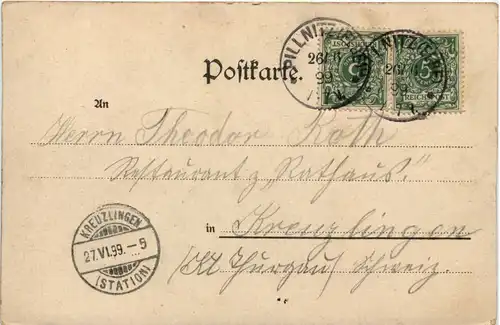 PILLNITZ (ELBE)
26/6
99
PILLNITZ (ELBE)
26/6
99
5
5
REICHSPOST
Postkarte.
An
Herrn Theodor Roth
Restaurant z „Rathaus“
in Kreuzlingen
(Kt Thurgau) Schweiz.
KREUZLINGEN
27.VI.99.–5
(STATION)